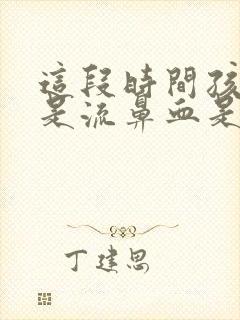 這段時間孩
是流鼻血是
丁建思